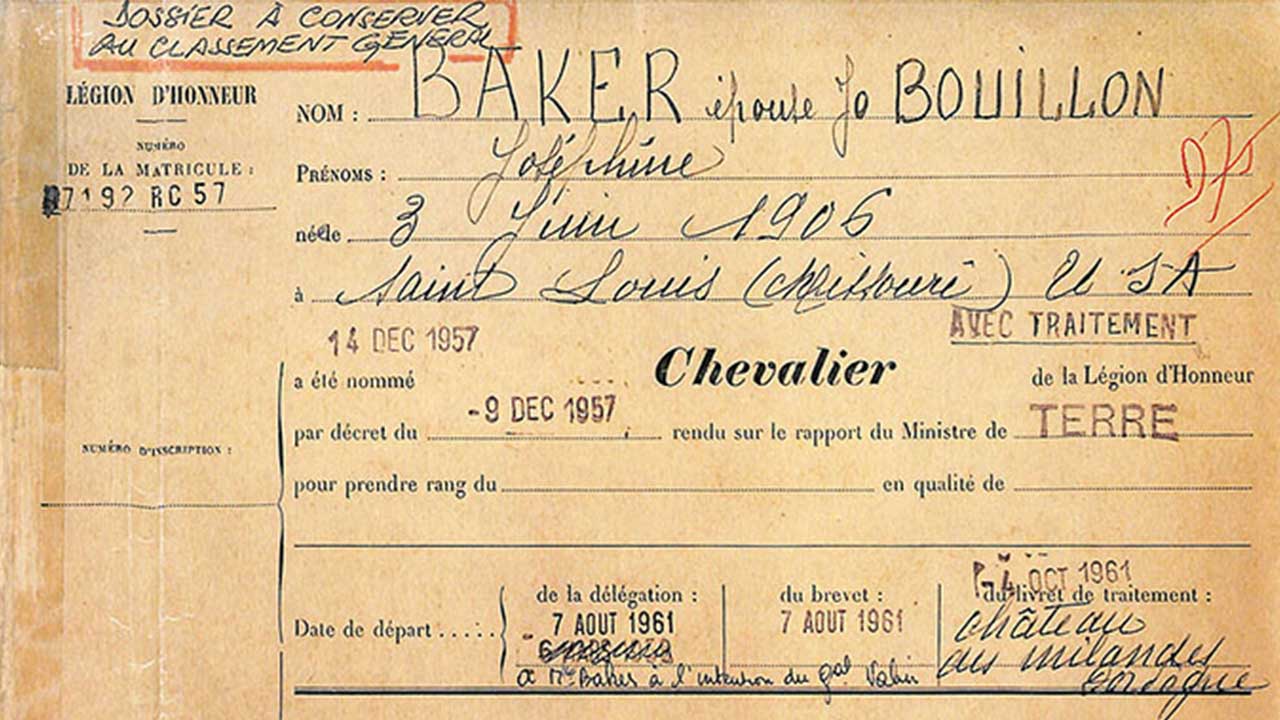 DOSSIER À CONSERVER
AU CLASSEMENT GENERAL
LÉGION D'HONNEUR
NUMÉRO
DE LA MATRICULE :
7192 RC 57
NUMÉRO D'INSCRIPTION :
NOM : BAKER épouse Jo BOUILLON
PRÉNOMS : Joséphine
née le 3 Juin 1906
à Saint Louis (Missouri) U S A
14 DEC 1957
AVEC TRAITEMENT
a été nommé Chevalier de la Légion d'Honneur
par décret du -9 DEC 1957 rendu sur le rapport du Ministre de TERRE
pour prendre rang du en qualité de
4 OCT 1961
de la délégation : du brevet : du livret de traitement :
Date de départ ..... 7 AOUT 1961 7 AOUT 1961 château
des milandes
Dordogne
à Me Baker à l'intention du gal Valin